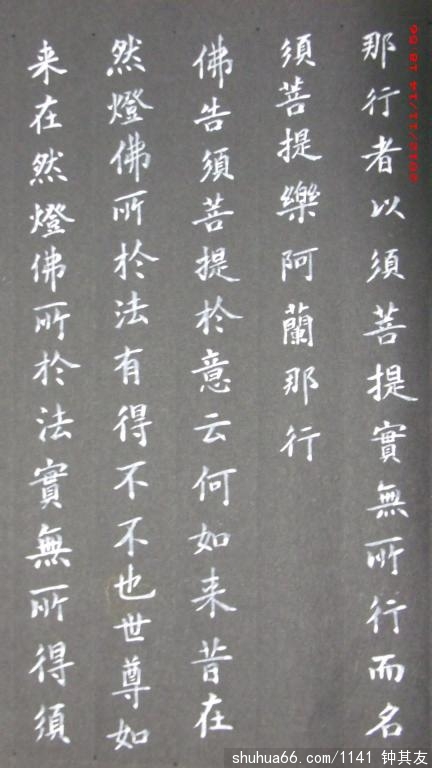 那行者以須菩提實無所行而名
須菩提樂阿蘭那行
佛告須菩提於意云何如来昔在
然燈佛所於法有得不不也世尊如
来在然燈佛所於法實無所得須
2012/11/14 18:56
shuhua66.com/1141 钟其友